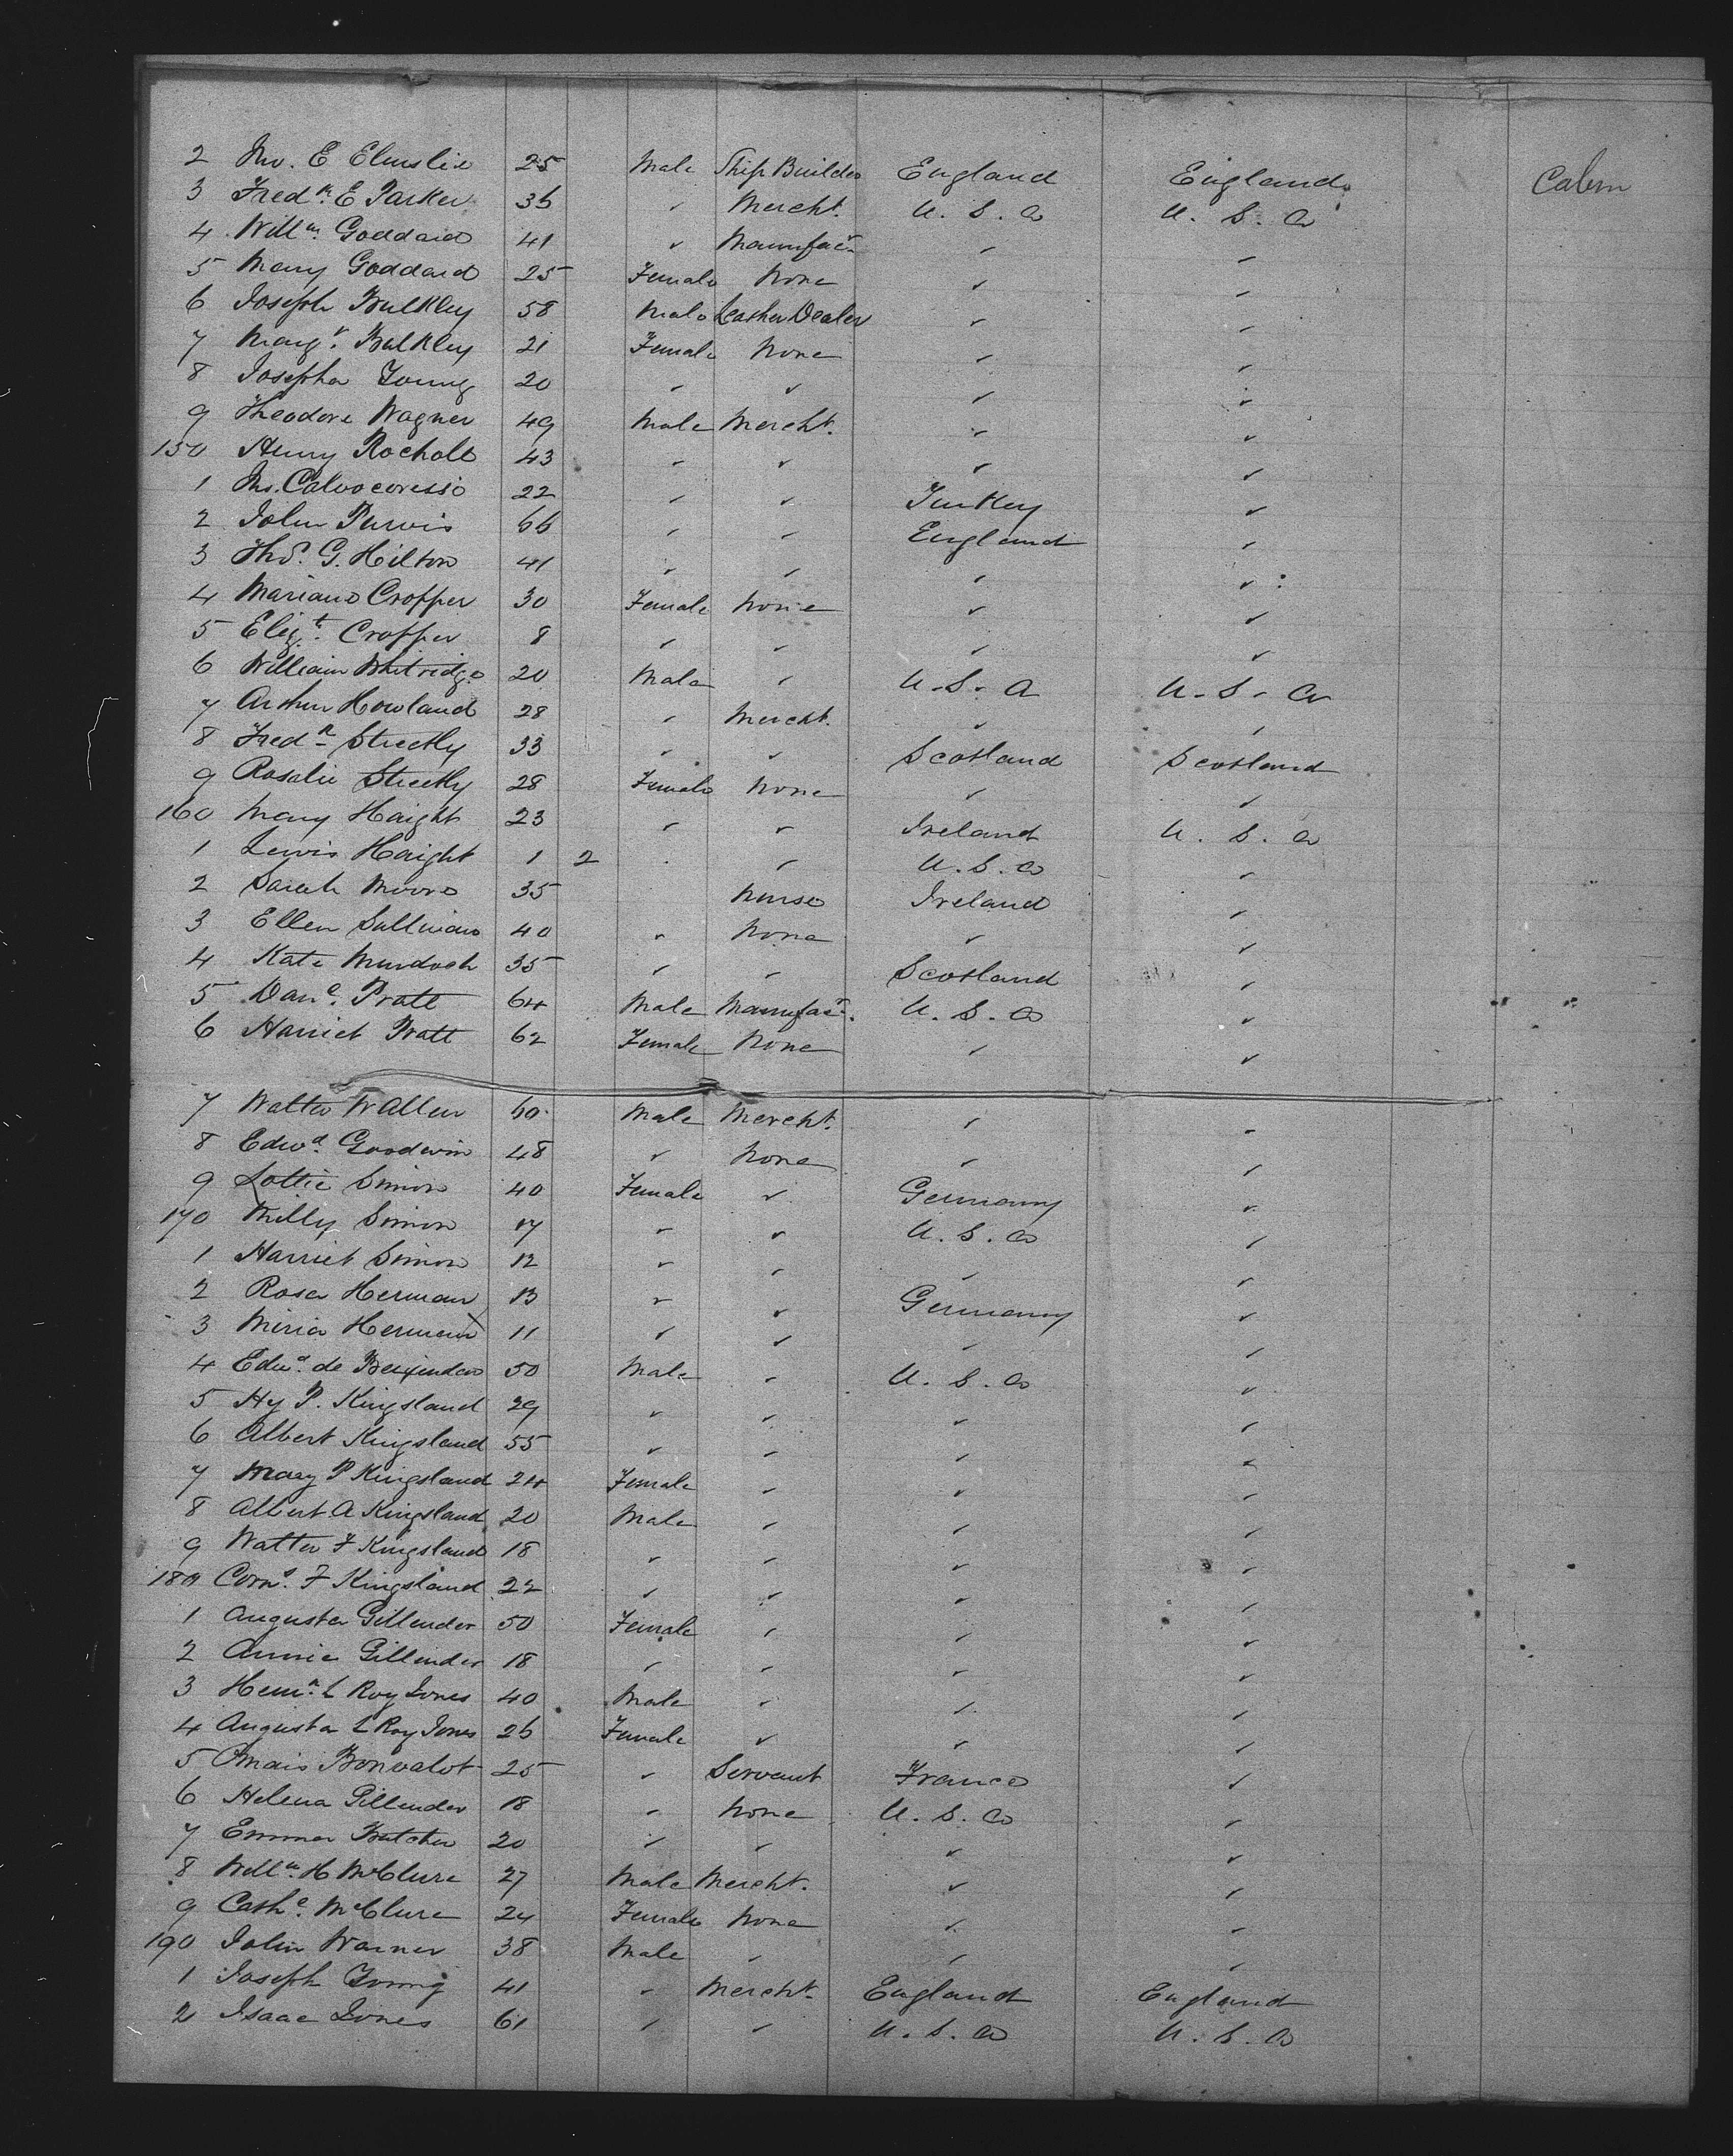 2 Jno. E Elmslie 25 Male Ship Builder England England Cabin
3 Fredk. E Parker 36 " Mercht. U. S. A U. S. A
4 Willm. Goddard 41 " Manufacr. " "
5 Mary Goddard 25 Female None " "
6 Joseph Bulkley 58 Male Leather Dealer " "
7 Margt. Bulkley 21 Female None " "
8 Josepha Young 20 " " " "
9 Theodore Wagner 49 Male Mercht. " "
150 Henry Rocholl 43 " " " "
1 Jno. Calvocoressio 22 " " Turkey "
2 John Purvis 66 " " England "
3 Thos. G. Hilton 41 " " " "
4 Mariano Cropper 30 Female None " "
5 Elizt. Cropper 8 " " " "
6 William Whitridge 20 Male " U. S. A U. S. A
7 Arthur Howland 28 " Mercht. " "
8 Fredk Streetly 33 " " Scotland Scotland
9 Rosalie Streetly 28 Female None " "
160 Mary Haight 23 " " Ireland U. S. A
1 Lewis Haight 1 2 " U. S. A "
2 Sarah Moore 35 Nurse Ireland "
3 Ellen Sullivan 40 " None " "
4 Kate Murdoch 35 " " Scotland "
5 Danl. Pratt 64 Male Manufacr. U. S. A "
6 Harriet Pratt 62 Female None " "
7 Walter W Allen 60 Male Mercht. " "
8 Edwd. Goodwin 48 " None " "
9 Lottie Simon 40 Female " Germany "
170 Milly Simon 17 " " U. S. A "
1 Harriet Simon 12 " " " "
2 Rosa Herman 13 " " Germany "
3 Miria Herman 11 " " " "
4 Edwd. de 50 Male " U. S. A "
5 Hy P. Kingsland 29 " " " "
6 Albert Kingsland 55 " " " "
7 Mary P Kingsland 24 Female " " "
8 Albert A Kingsland 20 Male " " "
9 Walter F Kingsland 18 " " " "
180 Corns. F Kingsland 22 " " " "
1 Augusta Gillender 50 Female " " "
2 Annie Gillender 18 " " " "
3 L Roy Jones 40 Male " " "
4 Augusta L Roy Jones 26 Female " " "
5 Bonvalot 25 " Servant France "
6 Helena Gillender 18 " None U. S. A "
7 Emma Butcher 20 " " " "
8 Willm. H McClure 27 Male Mercht. " "
9 Cathe. McClure 24 Female None " "
190 John Warner 38 Male " " "
1 Joseph Young 41 " Mercht. England England
2 Isaac Jones 61 " " U. S. A U. S. A